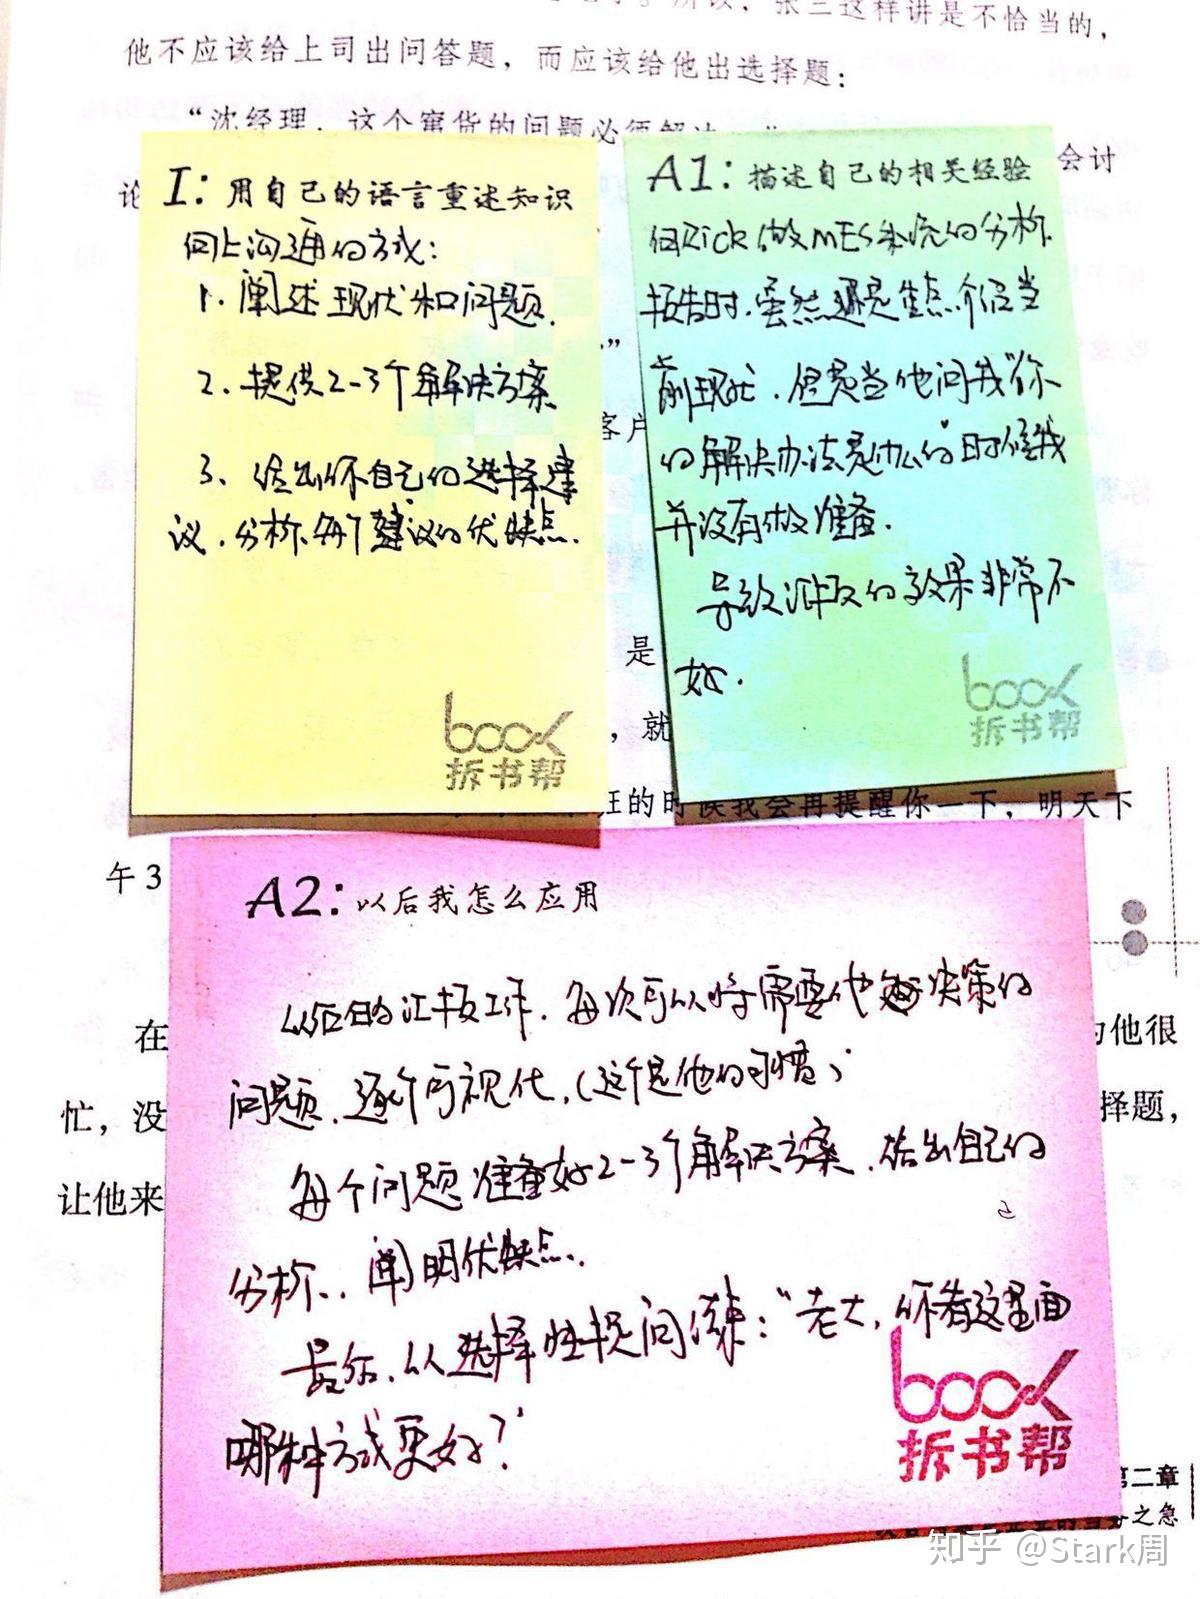 张三这样讲是不恰当的，
他不应该给上司出问答题，而应该给他出选择题：
“沈经理，这个窜货的问题必须解决
会讨
论
I：用自己的语言重述知识
向上沟通的方式：
1. 阐述现状和问题.
2. 提供2-3个解决方案
3. 给出你自己的选择建
议.分析每个建议的优缺点.
A1：描述自己的相关经验
向Rick做MES系统的分析
报告时.虽然逐是重点介绍当
前现状.但是当他问我“你
的解决办法是什么的时候我
并没有做准备.
导致汇报的效果非常不
好.
book
拆书帮
book
拆书帮
”
客户
是
，就
的时候我会再提醒你一下，明天下
午3
A2：以后我怎么应用
以后的汇报工作.每次可以将需要他决策的
问题.逐个可视化，(这个是他的习惯)
每个问题准备好2-3个解决方案.给出自己的
分析..阐明优缺点.
最后.以选择性提问结束：“老大,你看这里面
哪种方式更好?”
book
拆书帮
在
为他很
忙，没
择题，
让他来
第二章
之急
知乎 @Stark周